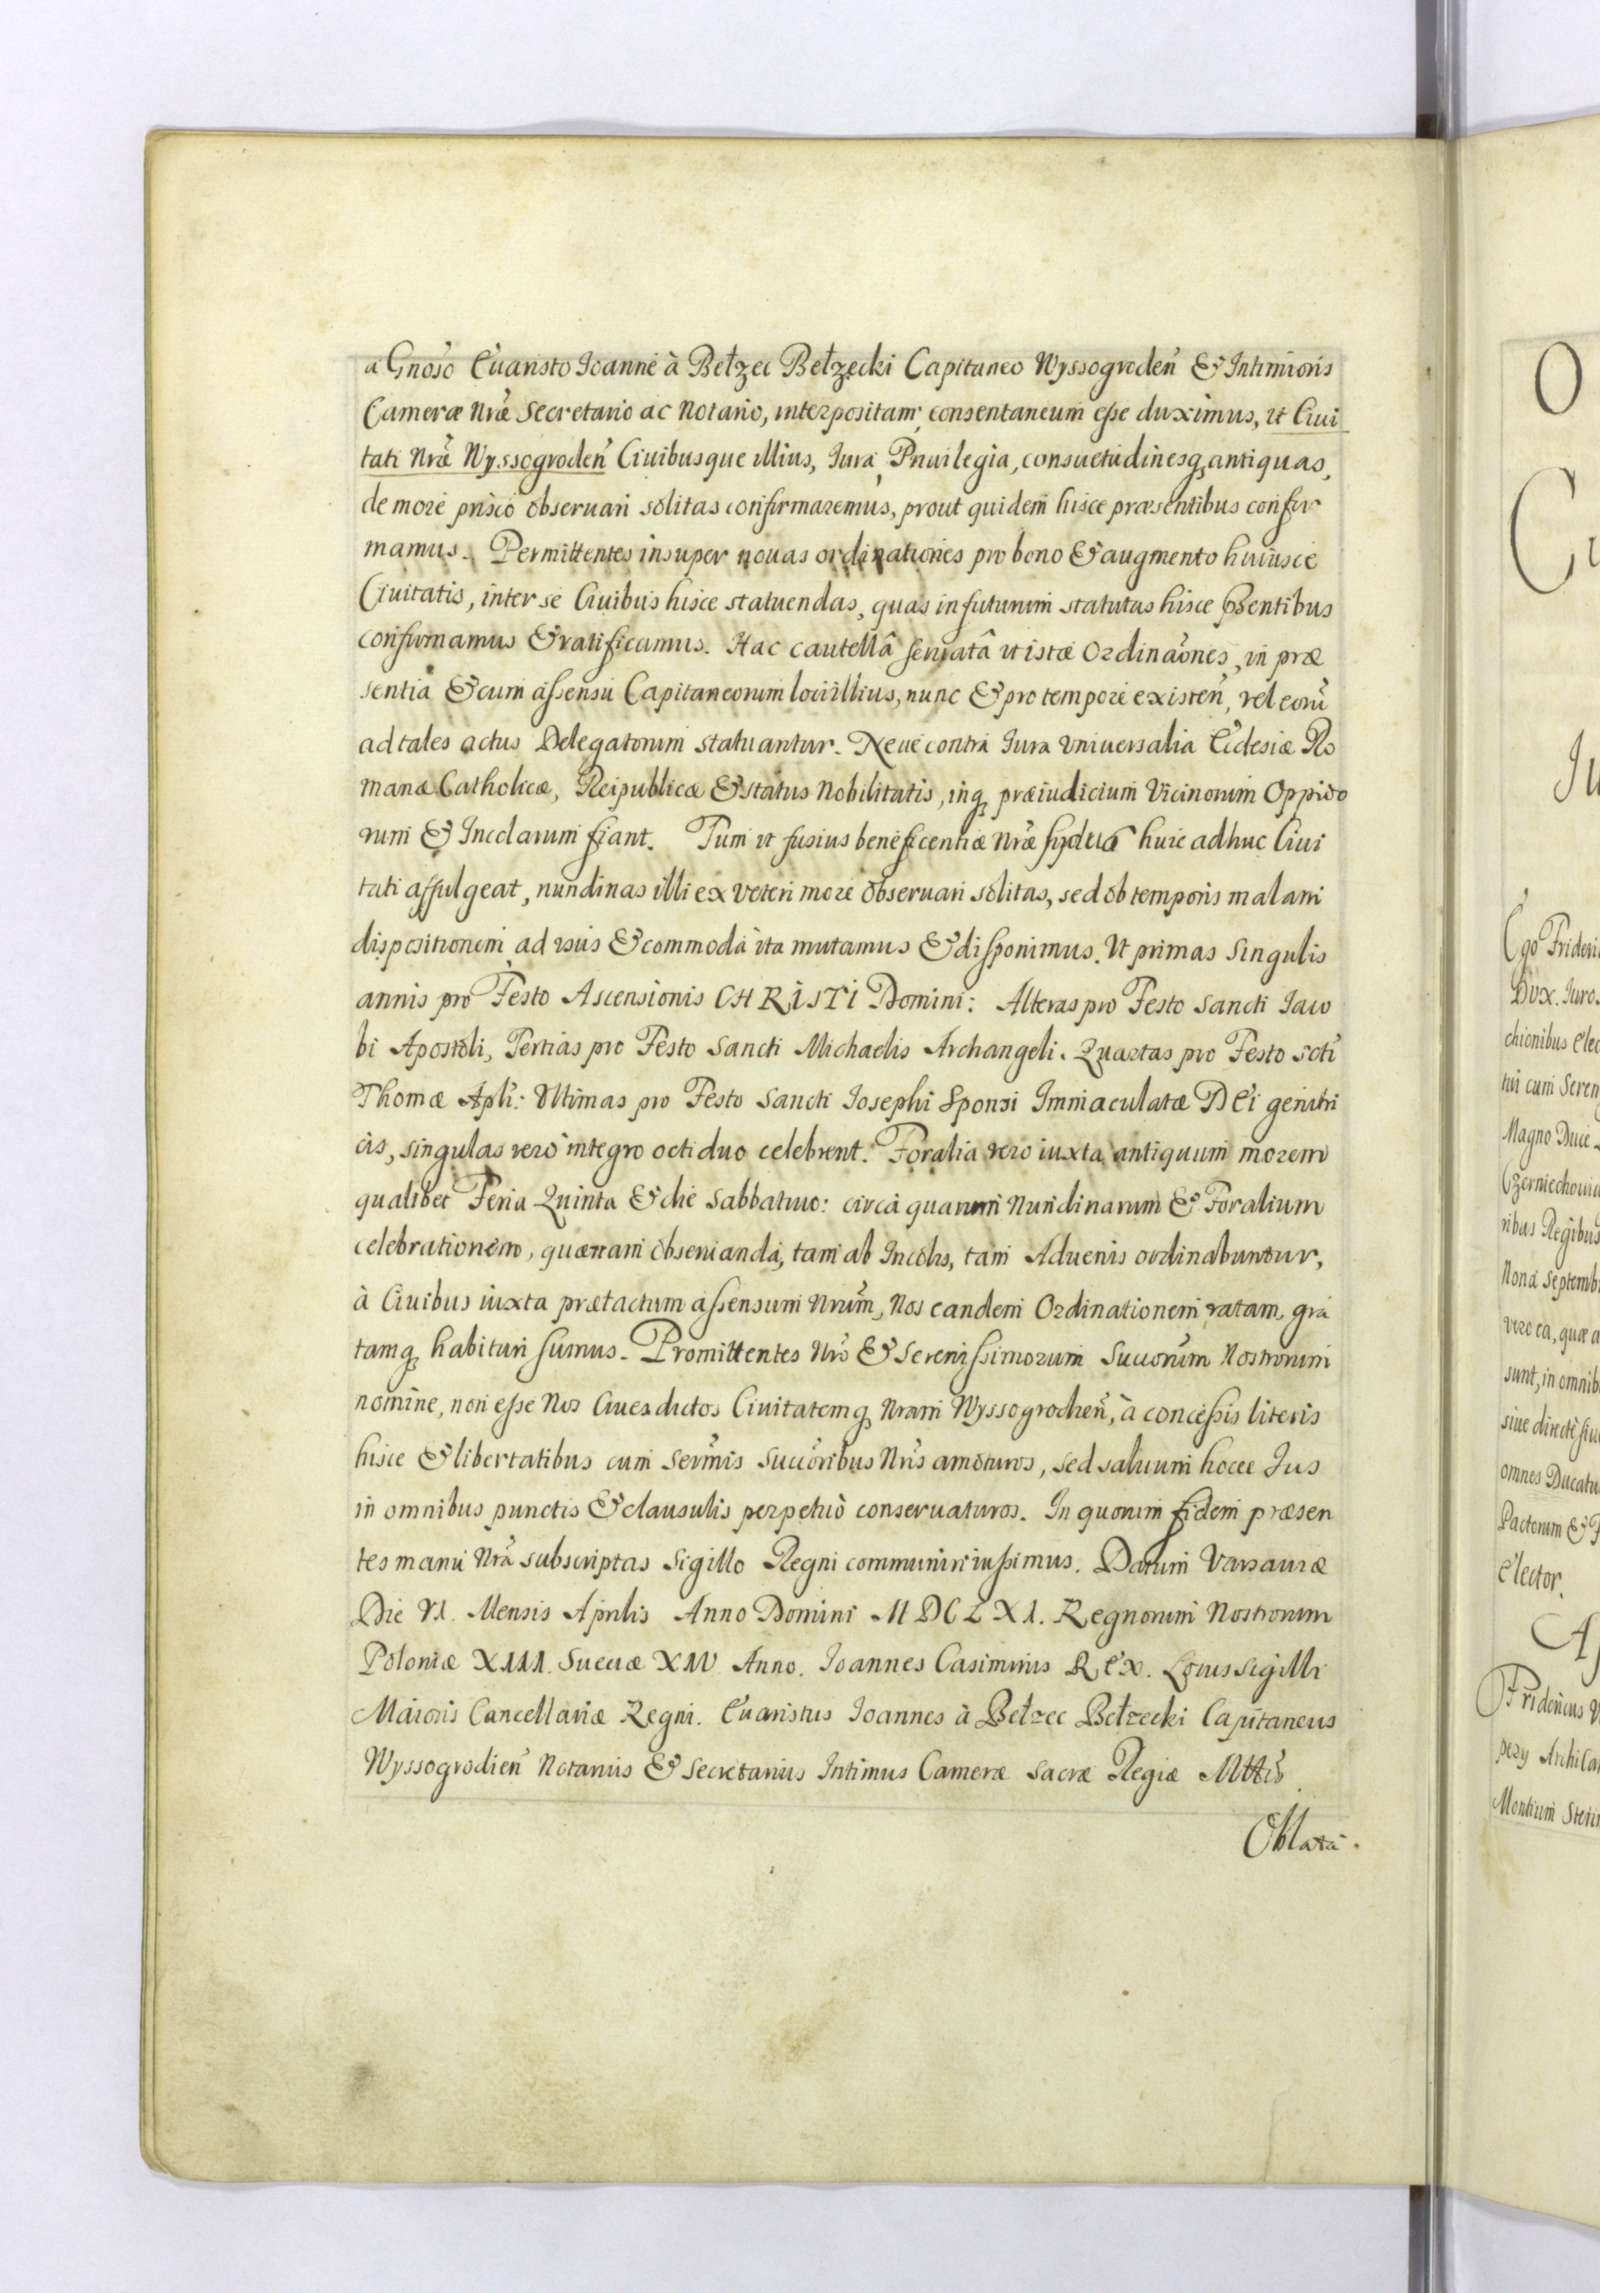 a Gnoso Euaristo Joanne à Bełzec Bełzecki Capitaneo Wyssogroden̄ & Intimioris
Cameræ Nr̄æ Secretario ac Notario, interpositam, consentaneum esse duximus, ut Ciui
tati Nr̄æ Wyssogroden̄ Ciuibusque illius, Iura Priuilegia, consuetudinesq, antiquas,
de more prisco obseruari solitas confirmaremus, prout quidem hisce præsentibus confir
mamus. Permittentes insuper nouas ordinationes pro bono & augmento huiusce
Ciuitatis, inter se Ciuibus hisce statuendas, quas in futurum statutas hisce pn̄tibus
confirmamus & ratificamus. Hac cautellâ seruatâ ut istæ Ordinaōnes, in præ
sentia & cum assensu Capitaneorum loci illius, nunc & pro tempore existen̄, vel eorū
ad tales actus Delegatorum statuantur. Neue contra Iura Vniuersalia Ecclesiæ Ro
manæ Catholicæ, Reipublicæ & status Nobilitatis, inq, præiudicium Vicinorum Oppido
rum & Incolarum fiant. Tum ut fusius beneficentiæ Nr̄æ sydus huic adhuc Ciui
tati affulgeat, nundinas illi ex veteri more obseruari solitas, sed ob temporis malam
dispositionem ad usus & commoda ita mutamus & disponimus. Ut primas singulis
annis pro Festo Ascensionis CHRISTI Domini: Alteras pro Festo Sancti Iaco
bi Apostoli, Tertias pro Festo Sancti Michaelis Archangeli. Quartas pro Festo Scti
Thomæ Apli: Ultimas pro Festo Sancti Iosephi Sponsi Immaculatæ DEi genitri
cis, singulas vero integro octiduo celebrent. Foralia vero iuxta antiquum morem
qualibet Feria Quinta & die Sabbatiuo: circa quarum Nundinarum & Foralium
celebrationem, quænam obseruanda, tam ab Incolis, tam Aduenis ordinabuntur,
à Ciuibus iuxta prætactum assensum Nrūm, Nos eandem Ordinationem ratam, gra
tamq, habituri sumus. Promittentes Nrō & Serenissimorum Succorūm Nostrorum
nomine, non esse Nos Ciues dictos Ciuitatemq, Nram Wyssogrodien̄, à concessis literis
hisce & libertatibus cum Sermis Succoribus Nrīs amoturos, sed saluum hocce Jus
in omnibus punctis & clausulis perpetuò conseruaturos. In quorum fidem præsen
tes manu Nrā subscriptas Sigillo Regni communiri iussimus. Datum Varsauiæ
Die VI. Mensis Aprilis Anno Domini MDCLXI. Regnorum Nostrorum
Poloniæ XIII. Sueciæ XIV Anno. Ioannes Casimirus REX. Locus Sigilli
Maioris Cancellariæ Regni. Euaristus Ioannes à Bełzec Bełzecki Capitaneus
Wyssogrodien̄ Notarius & Secretarius Intimus Cameræ Sacræ Regiæ Mttis
Oblata.